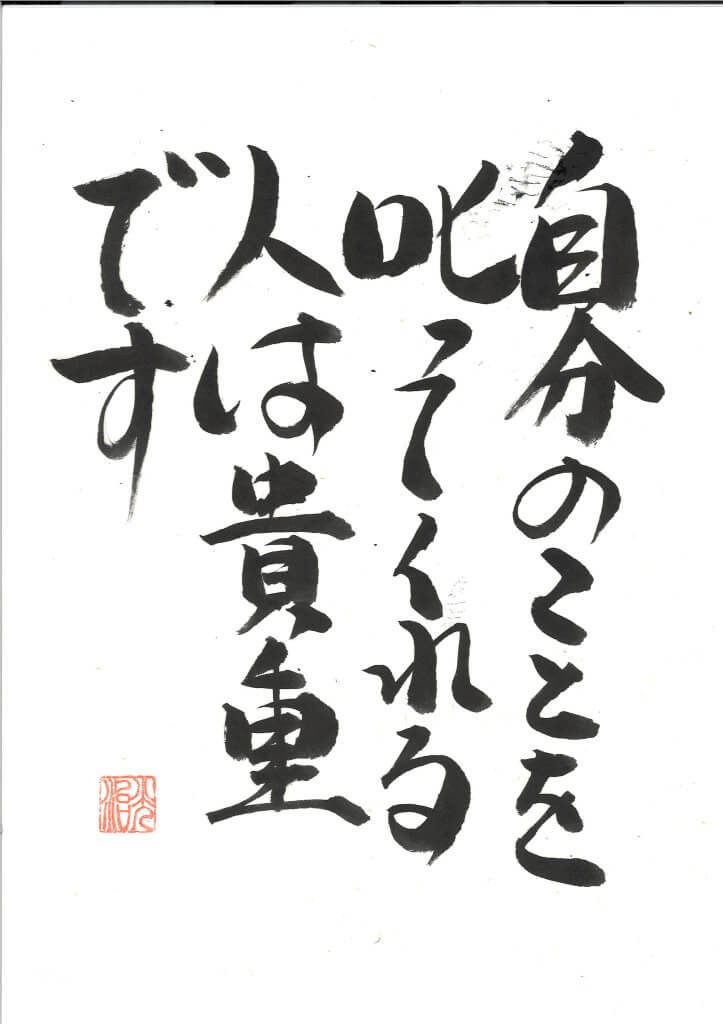 自分のことを
叱ってくれる
人は貴重
です